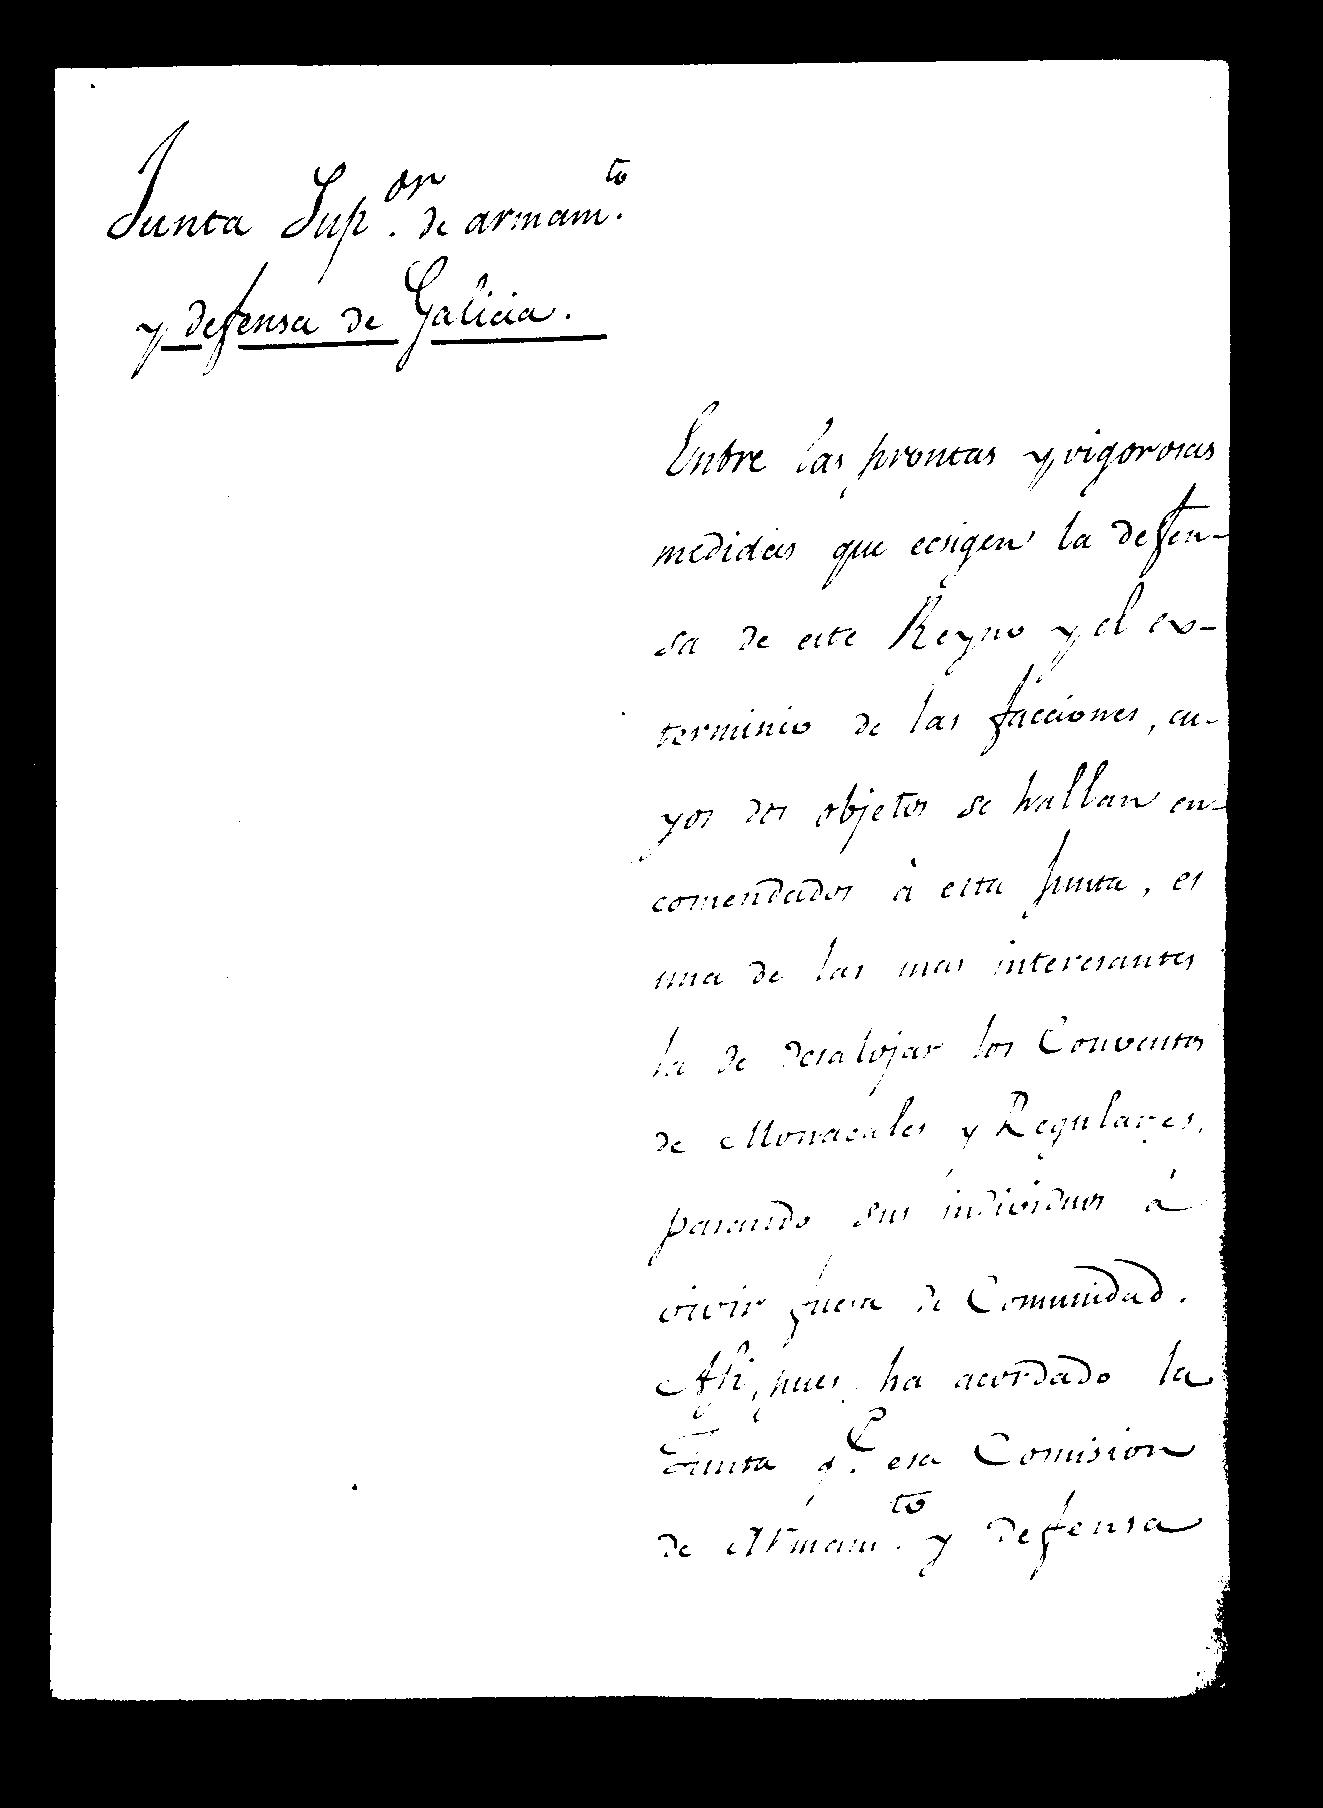 Junta Sup.or de armam.to
y defensa de Galicia.
Entre las prontas y vigorosas
medidas que ecsigen la defen-
sa de este Reyno y el ex-
terminio de las facciones, cu-
yos dos objetos se hallan en-
comendados à esta Junta, es
una de las mas interesantes
la de desalojar los Conventos
de Monacales y Regulares,
pasando sus individuos á
vivir fuera de Comunidad.
Asi, pues, ha acordado la
Junta q.e esa Comision
de Armam.to y defensa